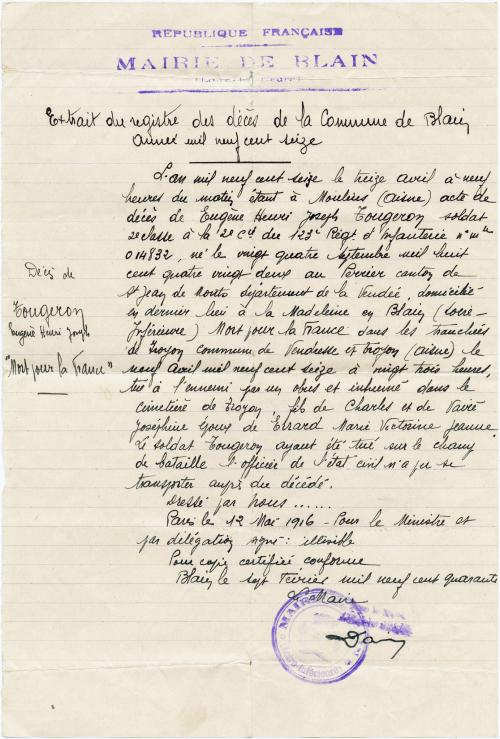 RÉPUBLIQUE FRANÇAISE
MAIRIE DE BLAIN
Extrait du registre des décès de la Commune de Blain
Année mil neuf cent seize
L'an mil neuf cent seize le treize avril à neuf
heures du matin, étant à Moulins (aisne) acte de
décès de Eugène Henri Joseph Tougeron soldat
2e classe à la 2e Cie du 123e Régt d'Infanterie n° mle
014832, né le vingt quatre septembre mil huit
cent quatre vingt deux au Perrier canton de
St Jean de Monts département de la Vendée, domicilié
en dernier lieu à la Madeleine en Blain (Loire-
Inférieure) Mort pour la France dans les tranchées
de Troyon commune de Vendresse et Troyon (aisne) le
neuf avril mil neuf cent seize à vingt trois heures,
tué à l'ennemi par un obus et inhumé dans le
cimetière de Troyon, fils de Charles et de Vairé
Joséphine époux de Erard Marie Victorine Jeanne
Le soldat Tougeron ayant été tué sur le champ
de bataille l'officier de l'état civil n'a pu se
transporter auprès du décédé.
Dressé par nous ......
Paris le 12 Mai 1916 - Pour le Ministre et
par délégation signé : illisible
Pour copie certifiée conforme
Blain le sept février mil neuf cent quarante
Le Maire
Décès de
Tougeron
Eugène Henri Joseph
"Mort pour la France"
MAIRIE
Loire-Inférieure